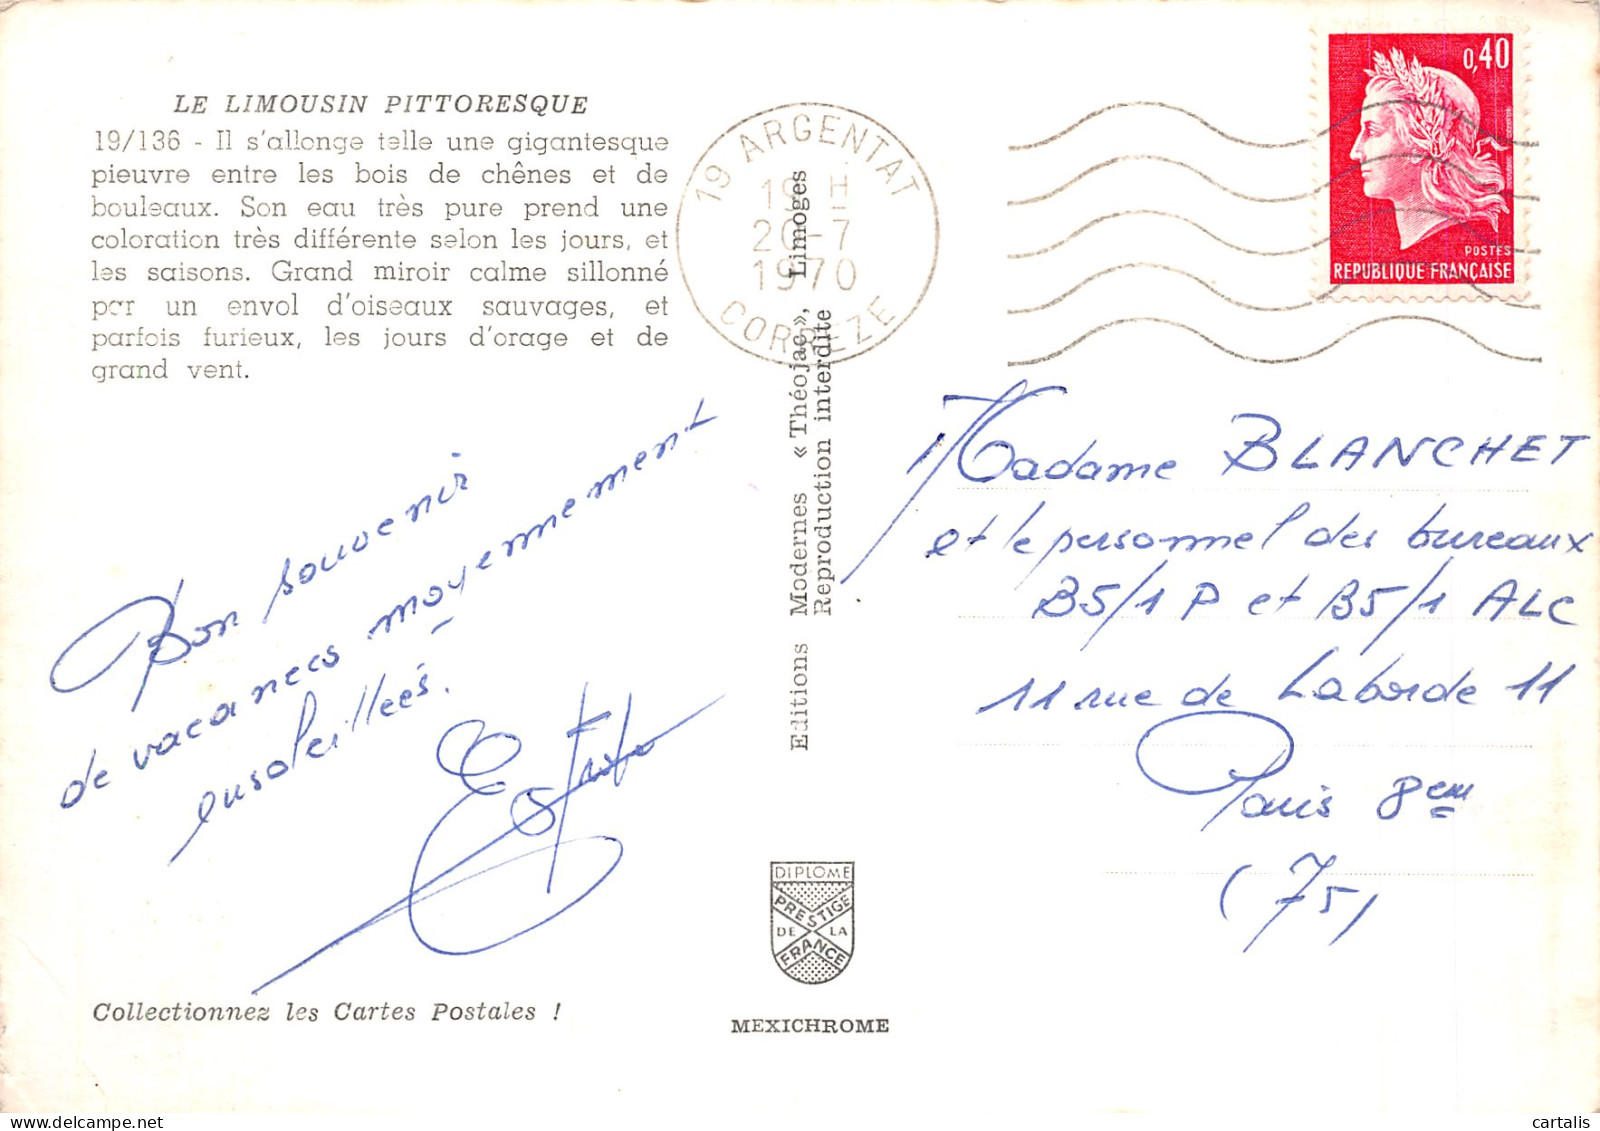 LE LIMOUSIN PITTORESQUE
19/136 - Il s'allonge telle une gigantesque
pieuvre entre les bois de chênes et de
bouleaux. Son eau très pure prend une
coloration très différente selon les jours, et
les saisons. Grand miroir calme sillonné
par un envol d'oiseaux sauvages, et
parfois furieux, les jours d'orage et de
grand vent.
Bon souvenir
de vacances moyennement
ensoleillées.
Collectionnez les Cartes Postales !
19 ARGENTAT
19 H
20-7
1970
CORREZE
Editions Modernes « Théojac », Limoges
Reproduction interdite
DIPLOME
PRESTIGE
DE LA
FRANCE
MEXICHROME
0,40
POSTES
REPUBLIQUE FRANÇAISE
Madame BLANCHET
et le personnel des bureaux
B5/1 P et B5/1 ALC
11 rue de Laborde 11
Paris 8em
(75)
cartalis